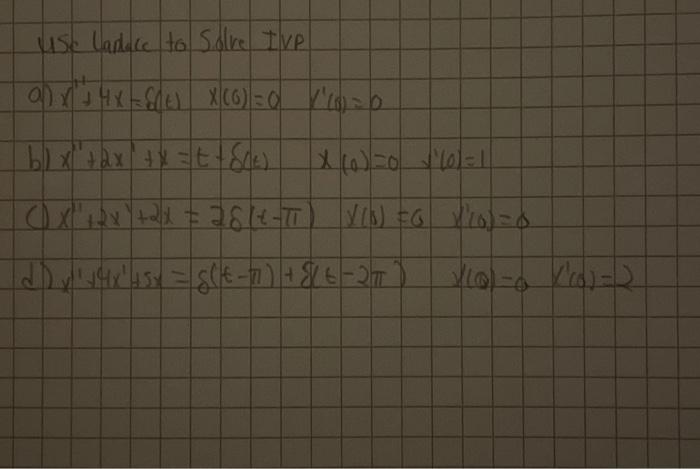 Use Laplace to Solve IVP
a) x''+4x=δ(t) x(0)=0 x'(0)=0
b) x''+2x'+x=t+δ(t) x(0)=0 x'(0)=1
c) x''+2x'+2x=2δ(t-π) x(0)=0 x'(0)=0
d) x''+4x'+5x=δ(t-π)+δ(t-2π) x(0)=0 x'(0)=2